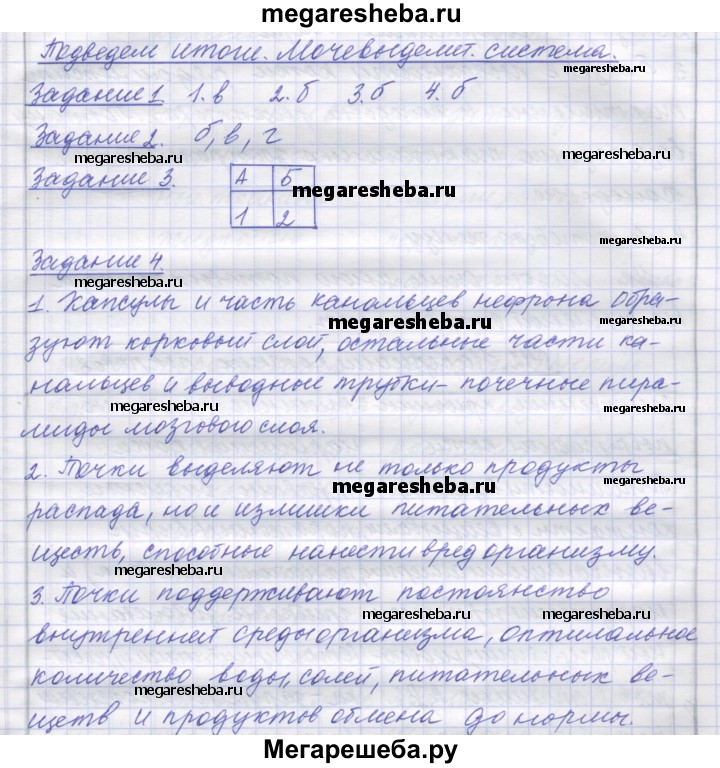 megaresheba.ru
Подведем итоги. Мочевыделит. система.
megaresheba.ru
Задание 1 1.в 2.б 3.б 4.б
Задание 2. б, в, г
megaresheba.ru megaresheba.ru
Задание 3. А Б
megaresheba.ru
1 2
megaresheba.ru
Задание 4.
megaresheba.ru
1. Капсулы и часть канальцев нефрона обра-
megaresheba.ru megaresheba.ru
зуют корковый слой, остальные части ка-
нальцев и выводные трубки - почечные пира-
megaresheba.ru megaresheba.ru
миды мозгового слоя.
2. Почки выделяют не только продукты
megaresheba.ru
распада, но и излишки питательных ве-
ществ, способные нанести вред организму.
megaresheba.ru megaresheba.ru
3. Почки поддерживают постоянство
megaresheba.ru megaresheba.ru
внутренней среды организма, оптимальное
количество воды, солей, питательных ве-
megaresheba.ru
ществ и продуктов обмена до нормы.
Мегарешеба.ру